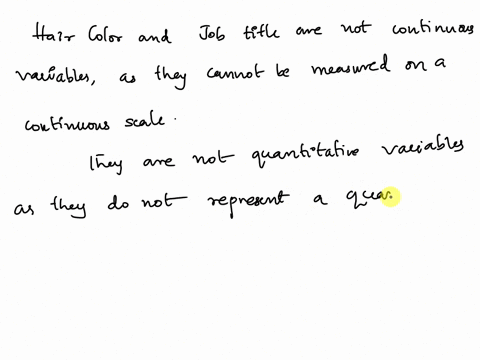 Hair Color and Job title are not continuous
variables, as they cannot be measured on a
continuous scale.
They are not quantitative variables
as they do not represent a qua